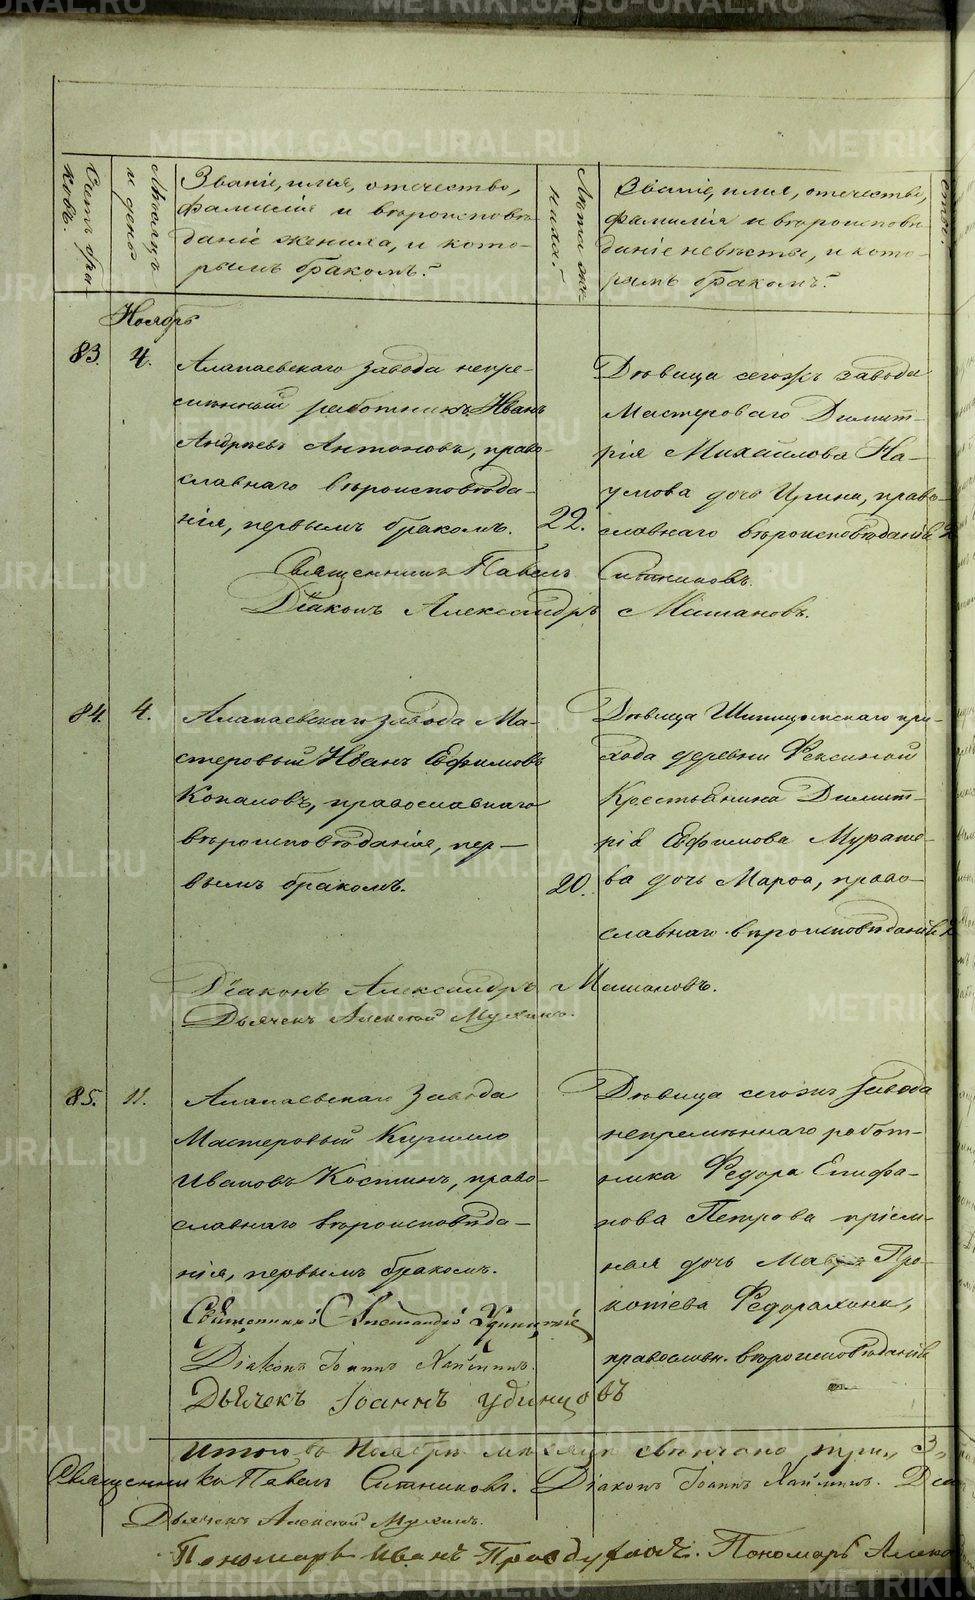 Счетъ бра-
ковъ.
Мѣсяцъ
и день
Званіе, имя, отечество,
фамилія и вѣроисповѣ-
даніе жениха, и кото-
рымъ бракомъ.
Лѣта же-
ниха.
Званіе, имя, отечество,
фамилія и вѣроисповѣ-
даніе невѣсты, и кото-
рымъ бракомъ.
Ноябрь
83.
4.
Алапаевскаго завода непре-
мѣнный работникъ Иванъ
Андреевъ Антоновъ, право-
славнаго вѣроисповѣда-
нія, первымъ бракомъ.
22.
Дѣвица сегожъ завода
Мастероваго Димит-
рія Михайлова На-
умова дочь Ирина, право-
славнаго вѣроисповѣданія
Священникъ Павелъ Ситниковъ.
Діаконъ Александръ Мишановъ.
84.
4.
Алапаевскаго завода Ма-
стеровый Иванъ Ефимовъ
Копаловъ, православнаго
вѣроисповѣданія, пер-
вымъ бракомъ.
20.
Дѣвица Шипицынскаго при-
хода деревни Фексиной
Крестьянина Димит-
рія Ефимова Мурате-
ва дочь Марѳа, право-
славнаго вѣроисповѣданія
Діаконъ Александръ Мишановъ.
Дьячекъ Алексѣй Мухинъ.
85.
11.
Алапаевскаго завода
Мастеровый Кирилло
Ивановъ Костинъ, право-
славнаго вѣроисповѣда-
нія, первымъ бракомъ.
Дѣвица сегожъ завода
непремѣннаго работ-
ника Федора Епифа-
нова Петрова пріем-
ная дочь Мавра Про-
копіева
православн. вѣроисповѣданія
Священникъ Александръ Удинцевъ
Діаконъ Іоаннъ
Дьячекъ Іоаннъ Удинцовъ
Итого въ Ноябрѣ мѣсяцѣ вѣнчано три, 3.
Священникъ Павелъ Ситниковъ. Діаконъ Іоаннъ
Дьячекъ Алексѣй Мухинъ.
Пономарь Иванъ Пономарь
METRIKI.GASO-URAL.RU